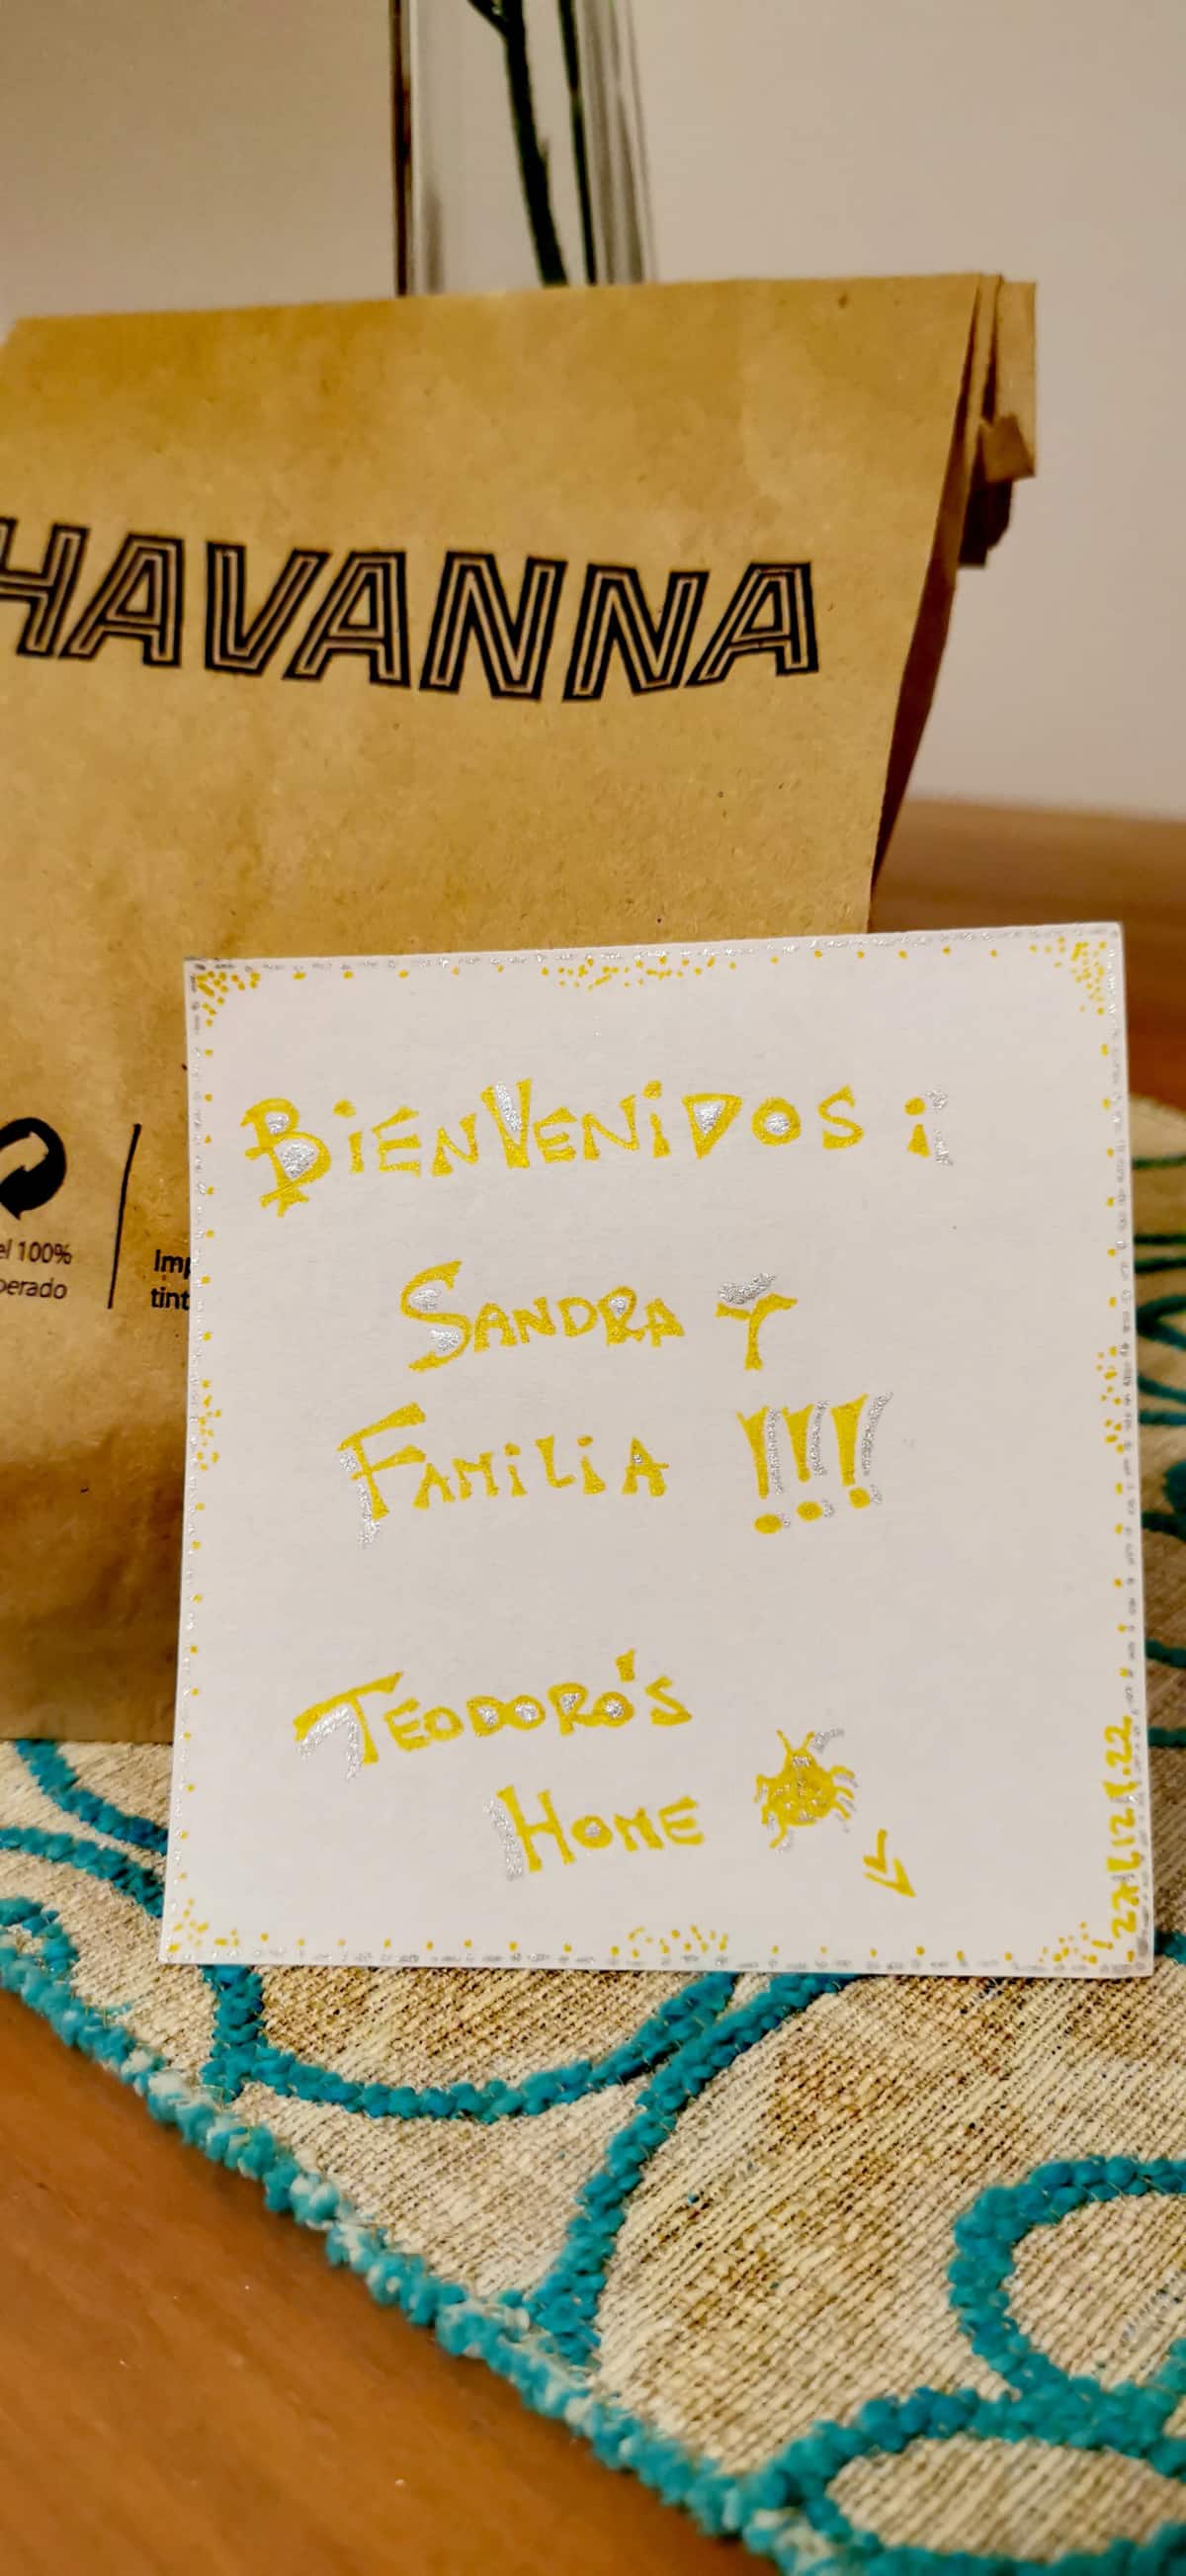 HAVANNA
el 100%
perado
Imp
tint
BiENVENiDOS ¡
SANDRA Y
FAMiLiA !!!
TEODORO'S
HOME